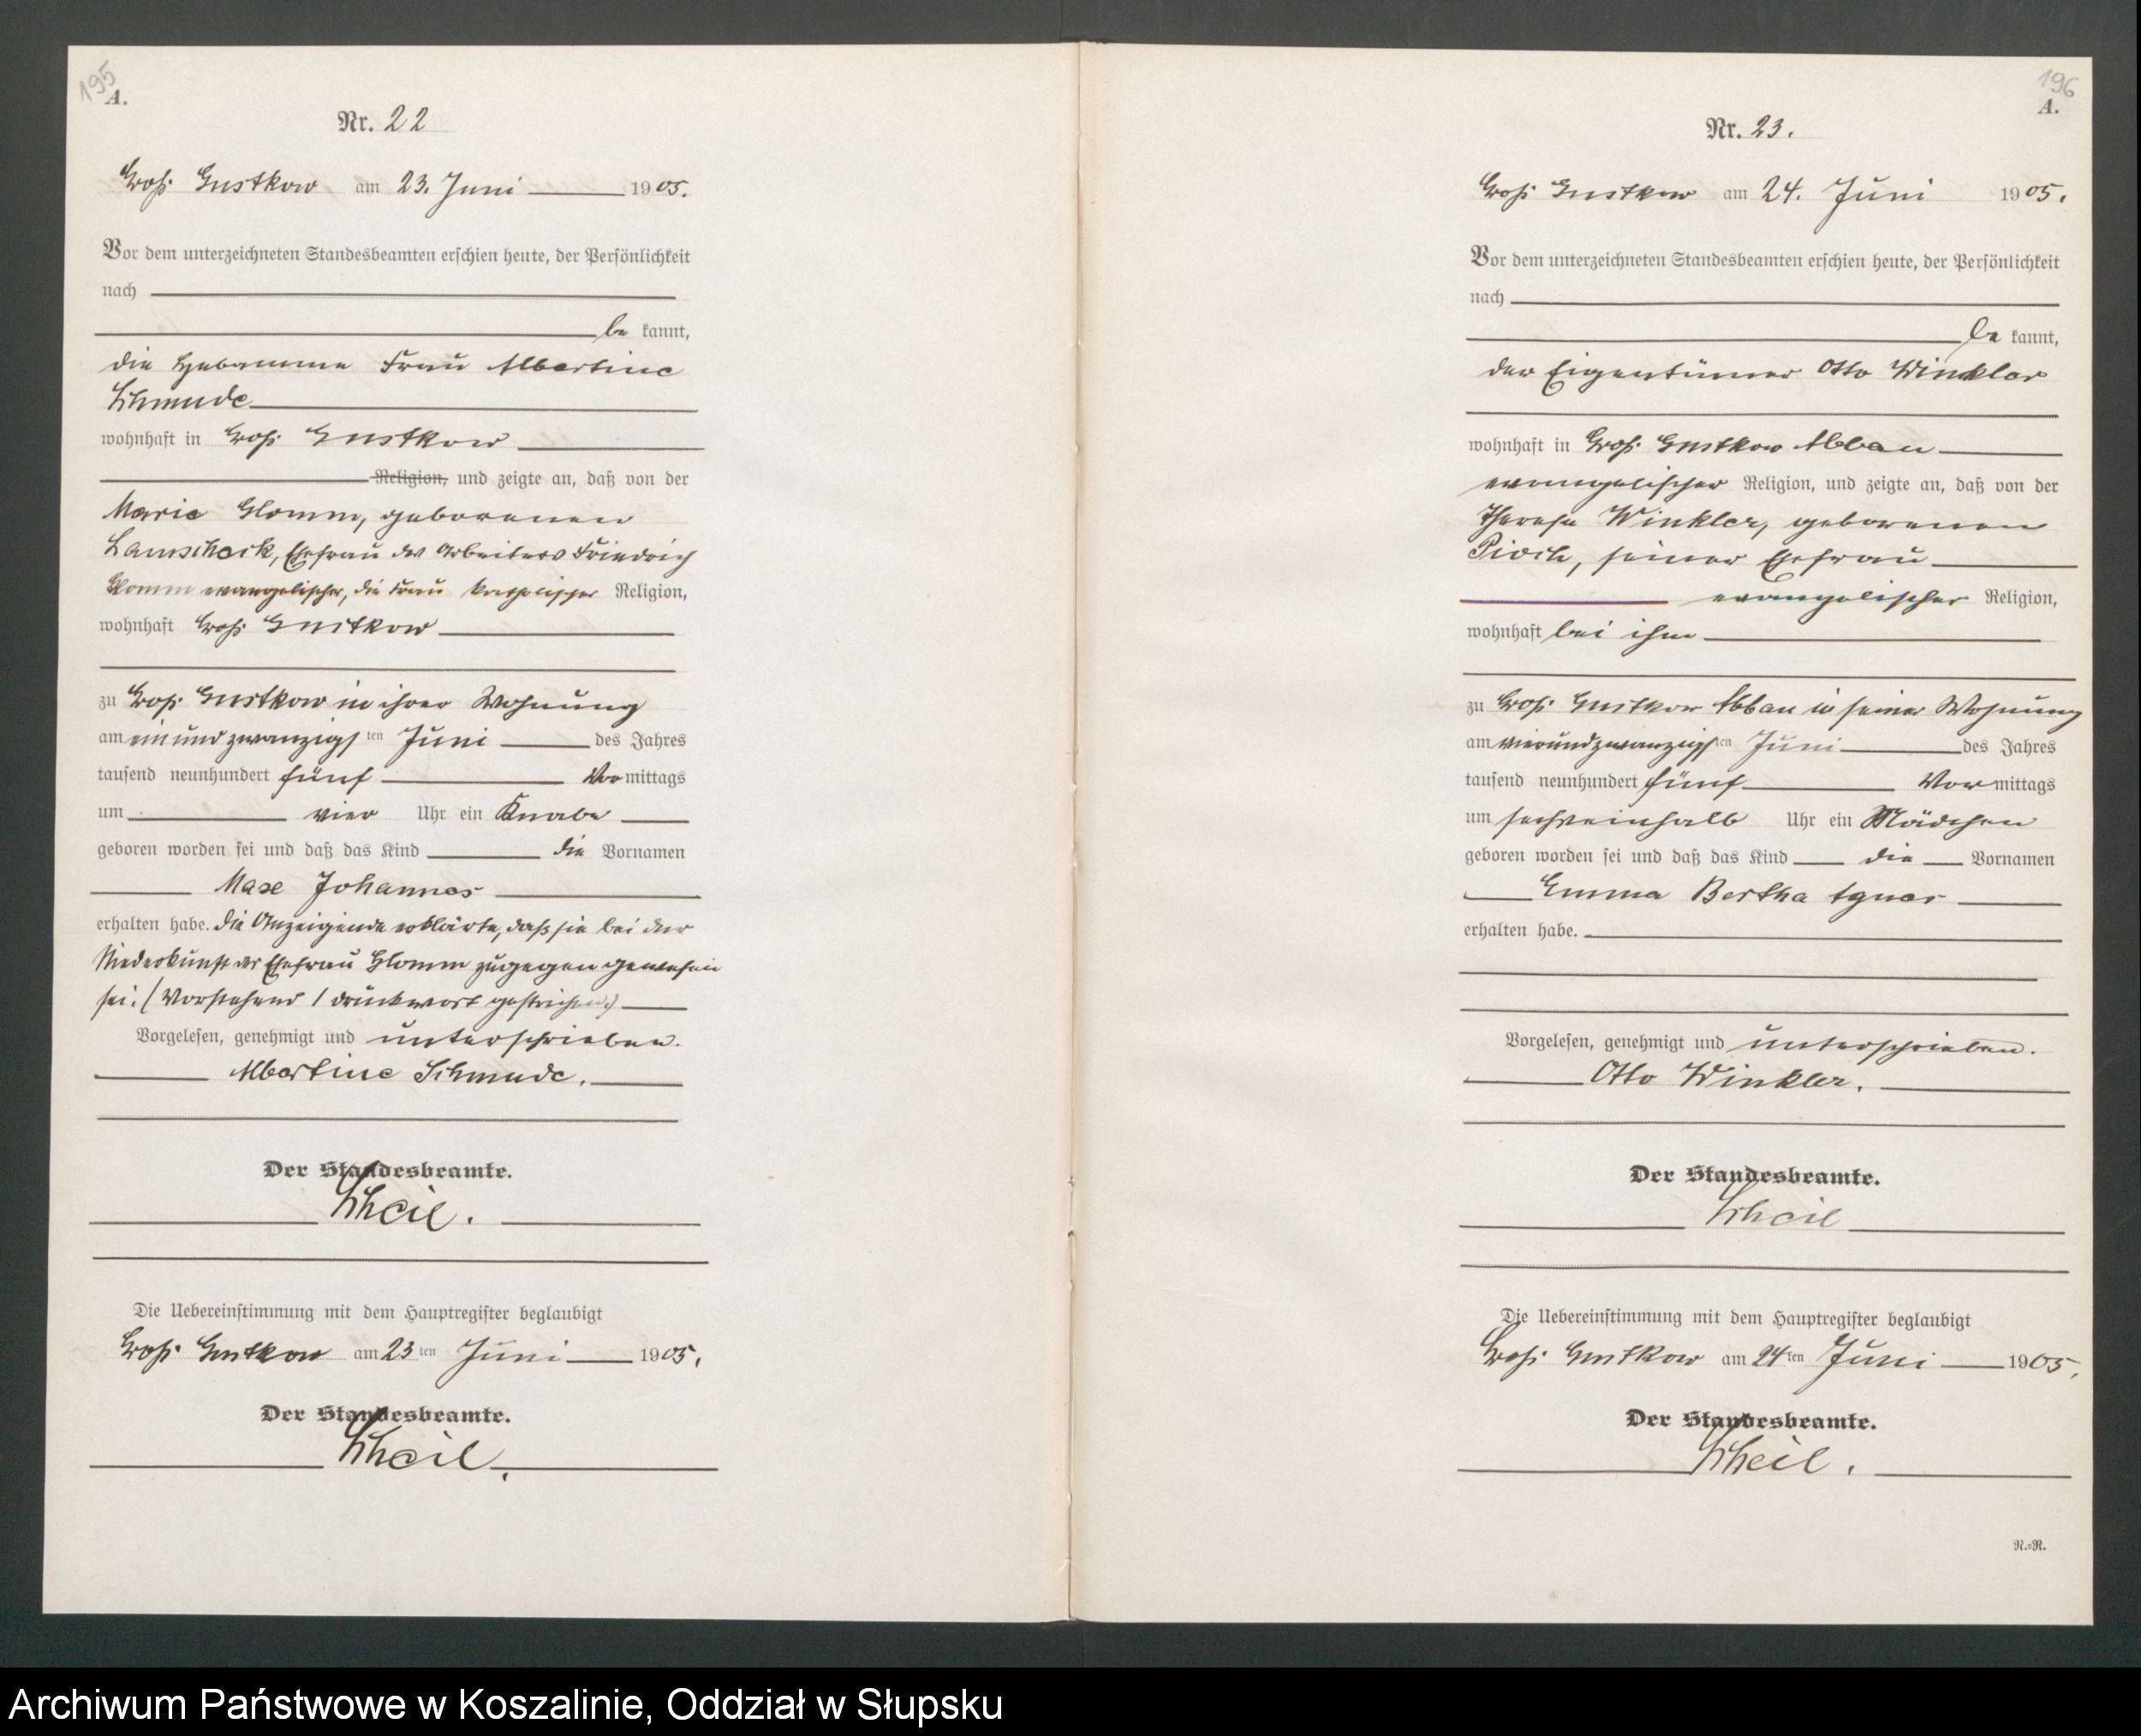 195
A.
Nr. 22
Groß Gustkow am 23. Juni 1905.
Vor dem unterzeichneten Standesbeamten erschien heute, der Persönlichkeit
nach
be kannt,
die Hebamme Frau Albertine
Schmude
wohnhaft in Groß Gustkow
Religion, und zeigte an, daß von der
Marie Glomm, geborenen
Lamscheck, Ehefrau des Arbeiters Friedrich
Glomm evangelischer, die Frau katholischer Religion,
wohnhaft Groß Gustkow
zu Groß Gustkow in ihrer Wohnung
am einundzwanzigsten Juni des Jahres
tausend neunhundert fünf Vormittags
um vier Uhr ein Knabe
geboren worden sei und daß das Kind die Vornamen
Max Johannes
erhalten habe. Die Anzeigende erklärte, daß sie bei der
Niederkunft der Ehefrau Glomm zugegen gewesen
sei. (Vorstehend 1 Druckwort gestrichen.)
Vorgelesen, genehmigt und unterschrieben.
Albertine Schmude.
Der Standesbeamte.
Scheil.
Die Uebereinstimmung mit dem Hauptregister beglaubigt
Groß Gustkow am 23ten Juni 1905.
Der Standesbeamte.
Scheil.
196
A.
Nr. 23.
Groß Gustkow am 24. Juni 1905.
Vor dem unterzeichneten Standesbeamten erschien heute, der Persönlichkeit
nach
be kannt,
der Eigentümer Otto Winkler
wohnhaft in Groß Gustkow Abbau
evangelischer Religion, und zeigte an, daß von der
Therese Winkler, geborenen
Pioch, seiner Ehefrau
evangelischer Religion,
wohnhaft bei ihm
zu Groß Gustkow Abbau in seiner Wohnung
am vierundzwanzigsten Juni des Jahres
tausend neunhundert fünf Vormittags
um sechseinhalb Uhr ein Mädchen
geboren worden sei und daß das Kind die Vornamen
Emma Bertha Agnes
erhalten habe.
Vorgelesen, genehmigt und unterschrieben.
Otto Winkler.
Der Standesbeamte.
Scheil
Die Uebereinstimmung mit dem Hauptregister beglaubigt
Groß Gustkow am 24ten Juni 1905.
Der Standesbeamte.
Scheil.
N.=R.
Archiwum Państwowe w Koszalinie, Oddział w Słupsku